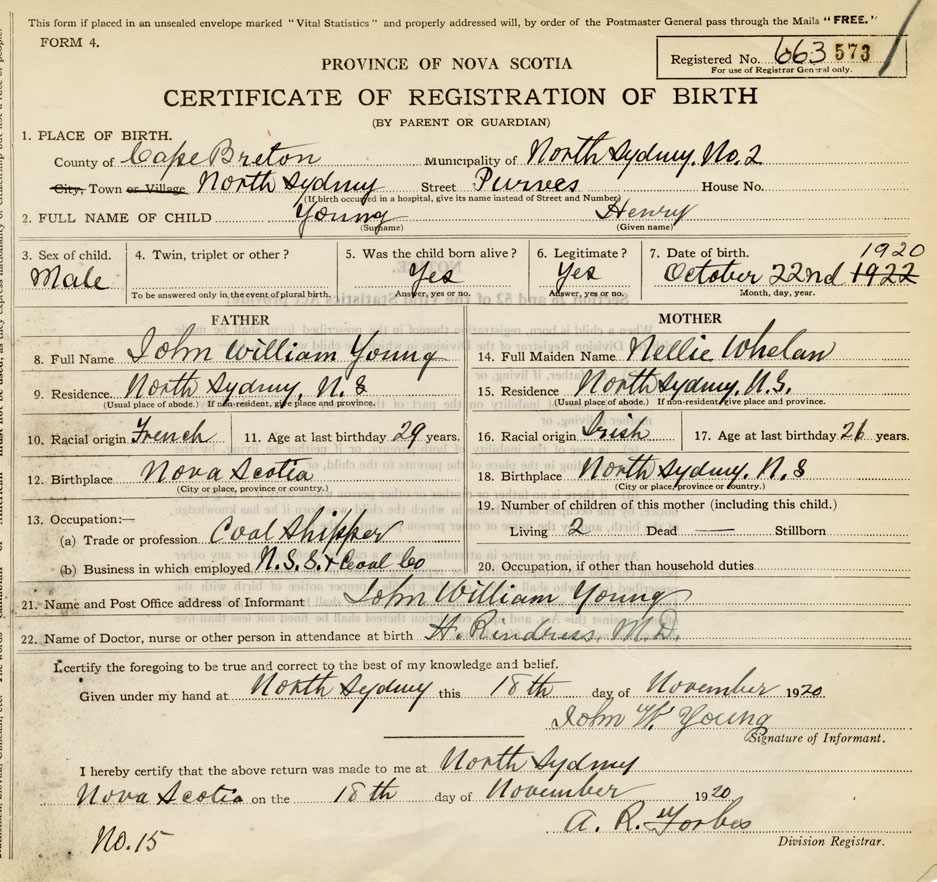 This form if placed in an unsealed envelope marked "Vital Statistics" and properly addressed will, by order of the Postmaster General pass through the Mails "FREE."
FORM 4.
Registered No. 663 573
For use of Registrar General only.
PROVINCE OF NOVA SCOTIA
CERTIFICATE OF REGISTRATION OF BIRTH
(BY PARENT OR GUARDIAN)
1. PLACE OF BIRTH.
County of Cape Breton Municipality of North Sydney, No. 2
City, Town or Village North Sydney Street Purves House No.
(If birth occurred in a hospital, give its name instead of Street and Number)
2. FULL NAME OF CHILD Young Henry
(Surname) (Given name)
3. Sex of child. 4. Twin, triplet or other? 5. Was the child born alive? 6. Legitimate? 7. Date of birth. 1920
Male Yes Yes October 22nd 1922
To be answered only in the event of plural birth. Answer, yes or no. Answer, yes or no. Month, day, year.
FATHER
8. Full Name John William Young
9. Residence North Sydney, N.S
(Usual place of abode.) If non-resident, give place and province.
10. Racial origin French 11. Age at last birthday 29 years.
12. Birthplace Nova Scotia
(City or place, province or country.)
13. Occupation:—
(a) Trade or profession Coal Shipper
(b) Business in which employed N.S.S. & Coal Co
MOTHER
14. Full Maiden Name Nellie Whelan
15. Residence North Sydney, N.S.
(Usual place of abode.) If non-resident, give place and province.
16. Racial origin Irish 17. Age at last birthday 26 years.
18. Birthplace North Sydney, N.S
(City or place, province or country.)
19. Number of children of this mother (including this child.)
Living 2 Dead — Stillborn
20. Occupation, if other than household duties
21. Name and Post Office address of Informant John William Young
22. Name of Doctor, nurse or other person in attendance at birth H. Rindress, M.D.
I certify the foregoing to be true and correct to the best of my knowledge and belief.
Given under my hand at North Sydney this 18th day of November 1920
John W. Young
Signature of Informant.
I hereby certify that the above return was made to me at North Sydney
Nova Scotia on the 18th day of November 1920
A. R. Forbes
No. 15
Division Registrar.